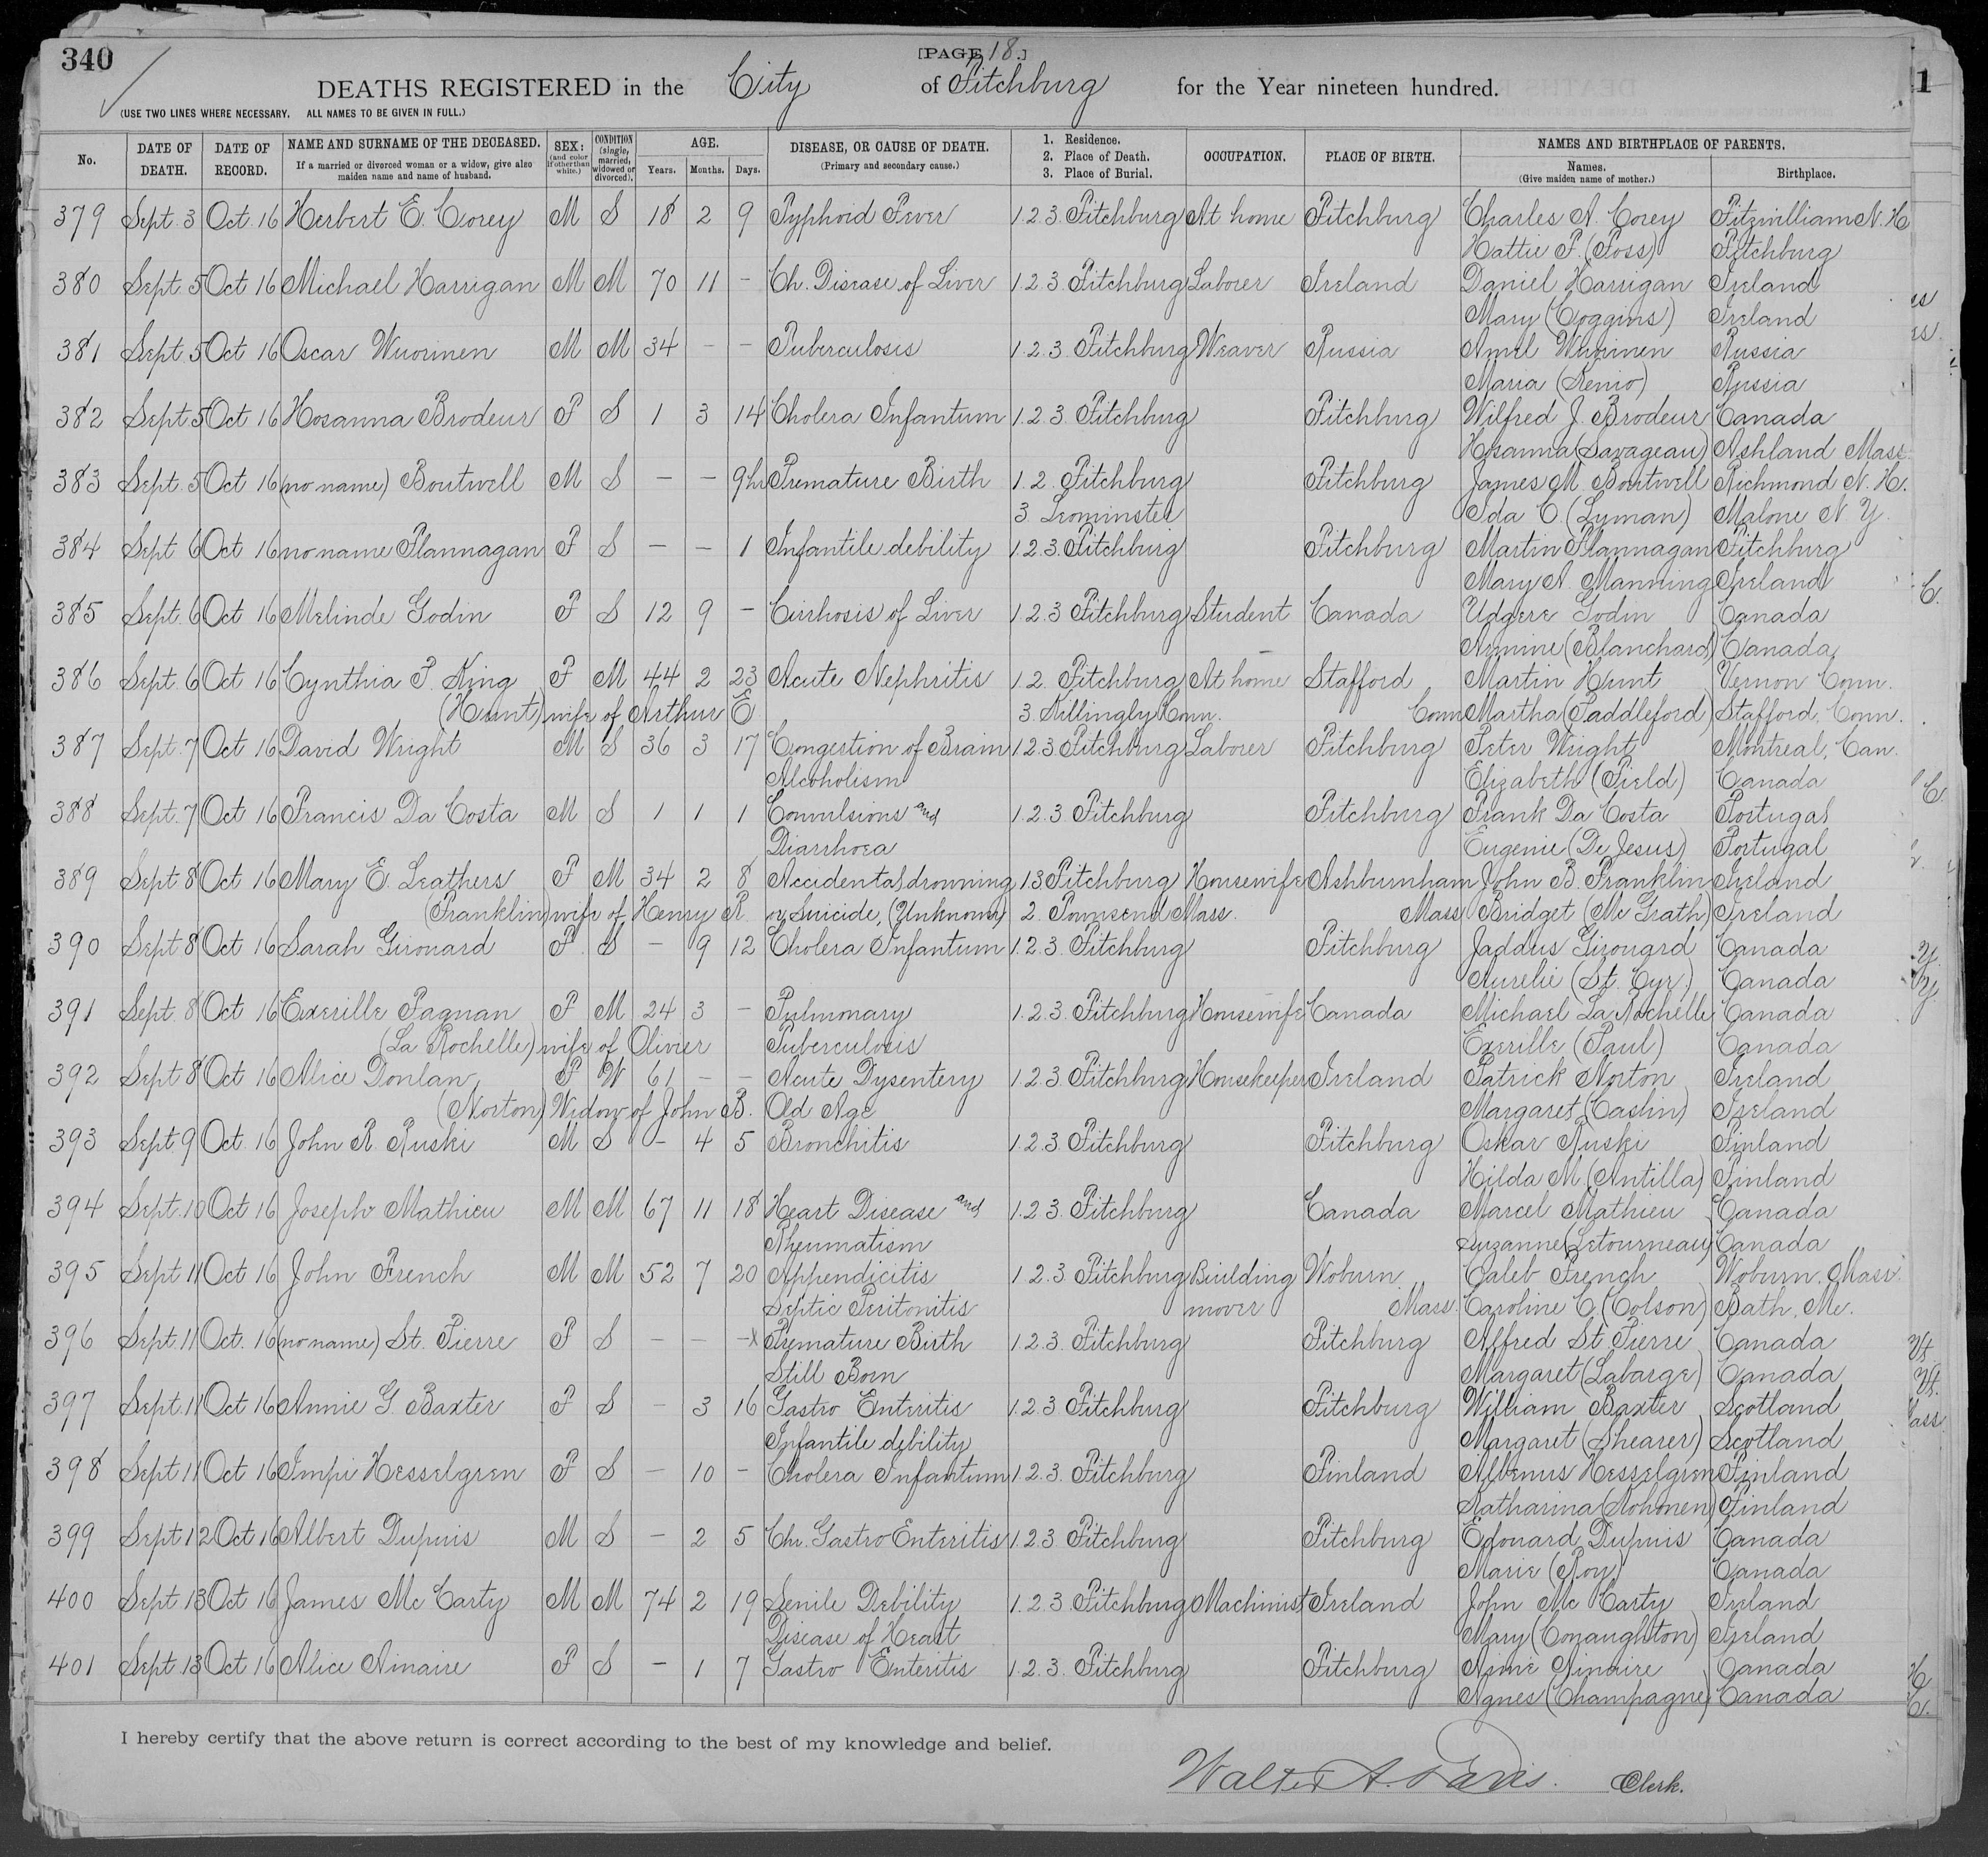 340
[PAGE 18.]
DEATHS REGISTERED in the City of Fitchburg for the Year nineteen hundred.
(USE TWO LINES WHERE NECESSARY. ALL NAMES TO BE GIVEN IN FULL.)
No. DATE OF DEATH. DATE OF RECORD. NAME AND SURNAME OF THE DECEASED. If a married or divorced woman or a widow, give also maiden name and name of husband. SEX: (and color if other than white.) CONDITION (single, married, widowed or divorced). AGE. Years. Months. Days. DISEASE, OR CAUSE OF DEATH. (Primary and secondary cause.) 1. Residence. 2. Place of Death. 3. Place of Burial. OCCUPATION. PLACE OF BIRTH. NAMES AND BIRTHPLACE OF PARENTS. Names. (Give maiden name of mother.) Birthplace.
379 Sept. 3 Oct. 16 Herbert E. Corey M S 18 2 9 Typhoid Fever 1.2.3. Fitchburg At home Fitchburg Charles A. Corey Fitzwilliam N. H
Hattie F. (Foss) Fitchburg
380 Sept. 5 Oct 16 Michael Harrigan M M 70 11 - Ch. Disease of Liver 1.2.3. Fitchburg Laborer Ireland Daniel Harrigan Ireland
Mary (Coggins) Ireland
381 Sept. 5 Oct 16 Oscar Wuorinen M M 34 - - Tuberculosis 1.2.3. Fitchburg Weaver Russia Amel Wuorinen Russia
Maria (Renio) Russia
382 Sept. 5 Oct 16 Hosanna Brodeur F S 1 3 14 Cholera Infantum 1.2.3. Fitchburg Fitchburg Wilfred J. Brodeur Canada
Hosanna (Savageau) Ashland Mass.
383 Sept. 5 Oct 16 (no name) Boutwell M S - - 9hr Premature Birth 1.2. Fitchburg Fitchburg James M. Boutwell Richmond N. H.
3 Leominster Ida C. (Lyman) Malone N. Y.
384 Sept. 6 Oct 16 no name Flannagan F S - - 1 Infantile debility 1.2.3. Fitchburg Fitchburg Martin Flannagan Fitchburg
Mary A. Manning Ireland
385 Sept. 6 Oct 16 Melinde Godin F S 12 9 - Cirrhosis of Liver 1.2.3 Fitchburg Student Canada Udgere Godin Canada
Armine (Blanchard) Canada
386 Sept. 6 Oct 16 Cynthia P. King F M 44 2 23 Acute Nephritis 1.2. Fitchburg At home Stafford Martin Hunt Vernon Conn.
(Hunt) wife of Arthur E 3. Killingly Conn. Conn Martha (Paddleford) Stafford, Conn.
387 Sept. 7 Oct 16 David Wright M S 36 3 17 Congestion of Brain 1.2.3 Fitchburg Laborer Fitchburg Peter Wright Montreal, Can.
Alcoholism Elizabeth (Field) Canada
388 Sept. 7 Oct 16 Francis Da Costa M S 1 1 1 Convulsions and 1.2.3. Fitchburg Fitchburg Frank Da Costa Portugal
Diarrhoea Eugenie (De Jesus) Portugal
389 Sept. 8 Oct 16 Mary E. Leathers F M 34 2 8 Accidental drowning 1 3 Fitchburg Housewife Ashburnham John B. Franklin Ireland
(Franklin) wife of Henry R. or Suicide, (Unknown) 2. Townsend Mass. Mass Bridget (Mc Grath) Ireland
390 Sept 8 Oct 16 Sarah Girouard F. S - 9 12 Cholera Infantum 1.2.3. Fitchburg Fitchburg Jaddus Girouard Canada
Aurelie (St. Cyr.) Canada
391 Sept. 8 Oct 16 Exerille Pagnan F M 24 3 - Pulmonary 1.2.3. Fitchburg Housewife Canada Michael La Rochelle Canada
(La Rochelle) wife of Olivier Tuberculosis Exerille (Paul) Canada
392 Sept 8 Oct 16 Alice Donlan F W 61 - - Acute Dysentery 1.2.3. Fitchburg Housekeeper Ireland Patrick Norton Ireland
(Norton) Widow of John B. Old Age Margaret (Caslin) Ireland
393 Sept. 9 Oct. 16 John R Ruski M S - 4 5 Bronchitis 1.2.3 Fitchburg Fitchburg Oskar Ruski Finland
Hilda M (Antilla) Finland
394 Sept. 10 Oct 16 Joseph Mathieu M M 67 11 18 Heart Disease and 1.2.3. Fitchburg Canada Marcel Mathieu Canada
Rheumatism Suzanne (Letourneau) Canada
395 Sept 11 Oct 16 John French M M 52 7 20 Appendicitis 1.2.3. Fitchburg Building Woburn Caleb French Woburn, Mass.
Septic Peritonitis mover Mass. Caroline C. (Colson) Bath, Me.
396 Sept. 11 Oct. 16 (no name) St. Pierre F S - - -x Premature Birth 1.2.3. Fitchburg Fitchburg Alfred St. Pierre Canada
Still Born Margaret (Labarge) Canada
397 Sept. 11 Oct 16 Annie G. Baxter F S - 3 16 Gastro Enteritis 1.2.3 Fitchburg Fitchburg William Baxter Scotland
Infantile debility Margaret (Shearer) Scotland
398 Sept 11 Oct 16 Impi Hesselgren F S - 10 - Cholera Infantum 1.2.3. Fitchburg Finland Albenus Hesselgren Finland
Katharina (Kohonen) Finland
399 Sept 12 Oct 16 Albert Dupuis M S - 2 5 Chr. Gastro Enteritis 1.2.3 Fitchburg Fitchburg Edouard Dupuis Canada
Marie (Roy) Canada
400 Sept 13 Oct 16 James Mc Carty M M 74 2 19 Senile Debility 1.2.3. Fitchburg Machinist Ireland John Mc Carty Ireland
Disease of Heart Mary (Conaughton) Ireland
401 Sept 13 Oct 16 Alice Ainaire F S - 1 7 Gastro Enteritis 1.2.3. Fitchburg Fitchburg Aimé Ainaire Canada
Agnes (Champagne) Canada
I hereby certify that the above return is correct according to the best of my knowledge and belief.
Walter A. Davis. Clerk.